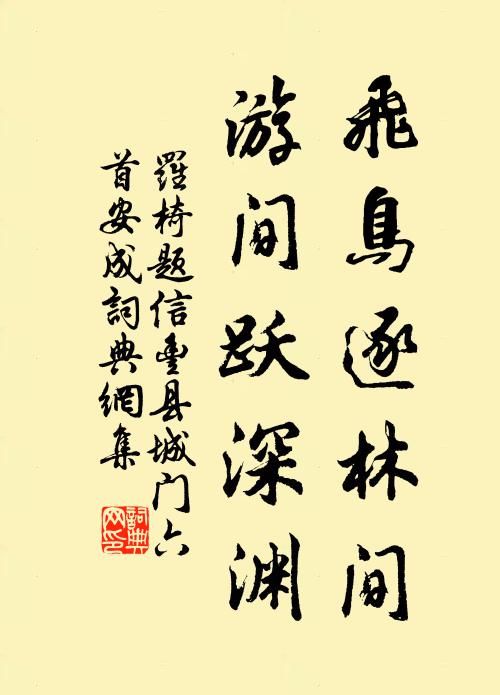 飛鳥逐林间
游间跃深渊
羅椅题信豊县城门六
首安成詞典網集
詞典
网印